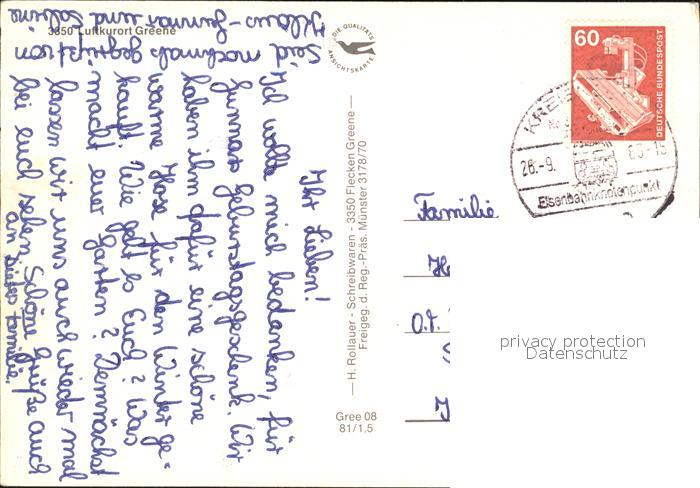 3350 Luftkurort Greene
DIE QUALITÄTS
ANSICHTSKARTE
Ihr Lieben!
Ich wollte mich bedanken, für
Gunnars Geburtstagsgeschenk. Wir
haben ihm dafür eine schöne
warme Hose für den Winter ge-
kauft. Wie geht es Euch? Was
macht euer Garten? Demnächst
lassen wir uns auch wieder mal
bei euch sehen. Schöne Grüße auch
an Dieters Familie.
Seid nochmals gegrüßt von
Klaus-Gunnar und Sabine
— H. Rollauer - Schreibwaren - 3350 Flecken Greene —
Freigeg. d. Reg.-Präs. Münster 3178/70
Gree 08
81/1,5
60
DEUTSCHE BUNDESPOST
KREIENSEN
26.-9.
Eisenbahnknotenpunkt
Familie
privacy protection
Datenschutz